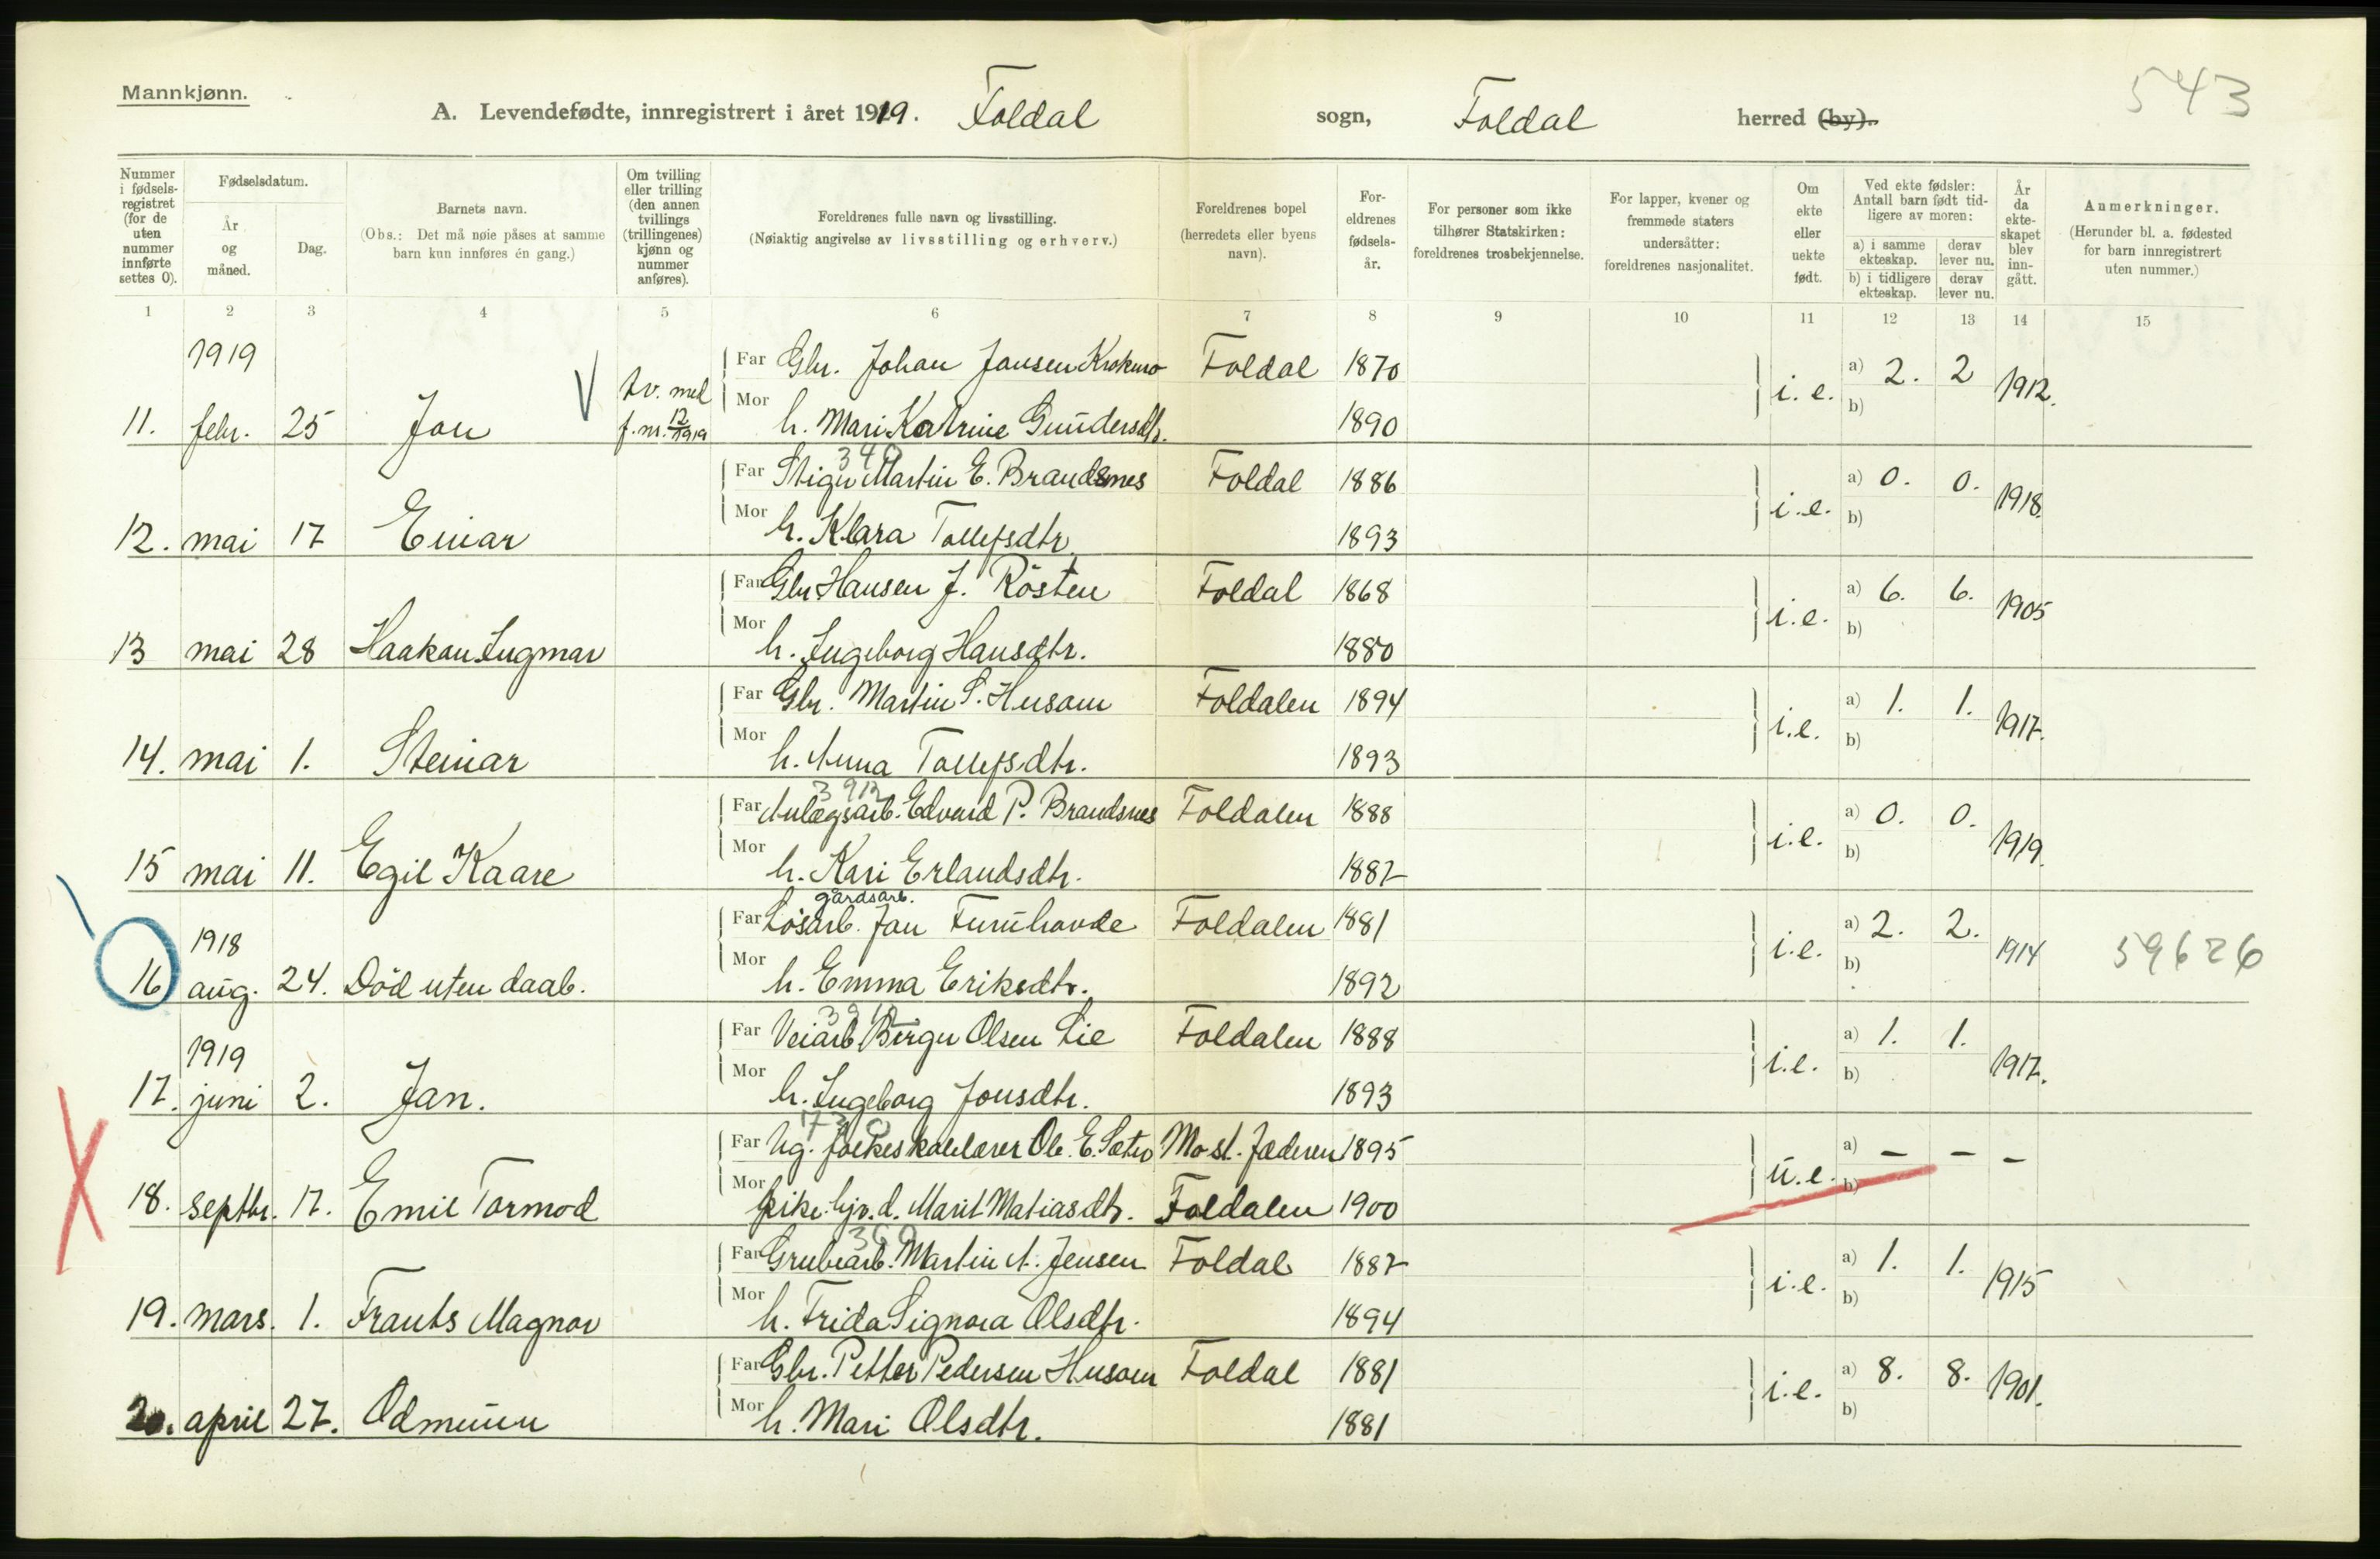 Mannkjønn.
543
A. Levendefødte, innregistrert i året 1919. Foldal sogn, Foldal herred (by).
Nummer i fødsels-registret (for de uten nummer innførte settes 0).
Fødselsdatum.
År og måned.
Dag.
Barnets navn.
(Obs.: Det må nøie påses at samme barn kun innføres én gang.)
Om tvilling eller trilling (den annen tvillings (trillingenes) kjønn og nummer anføres).
Foreldrenes fulle navn og livsstilling.
(Nøiaktig angivelse av livsstilling og erhverv.)
Foreldrenes bopel (herredets eller byens navn).
For-eldrenes fødsels-år.
For personer som ikke tilhører Statskirken: foreldrenes trosbekjennelse.
For lapper, kvener og fremmede staters undersåtter: foreldrenes nasjonalitet.
Om ekte eller uekte født.
Ved ekte fødsler: Antall barn født tid-ligere av moren:
a) i samme ekteskap.
derav lever nu.
b) i tidligere ekteskap.
derav lever nu.
År da ekte-skapet blev inn-gått.
Anmerkninger.
(Herunder bl. a. fødested for barn innregistrert uten nummer.)
1 2 3 4 5 6 7 8 9 10 11 12 13 14 15
1919 tv. med Far Gbr. Johan Jansen Krokmo Foldal 1870 a) 2. 2
11. febr. 25 Jon V f.nr. 12/1919 Mor h. Mari Katrine Gundersdtr. 1890 i.e. b) 1912.
340
Far Stiger Martin E. Brandsnes Foldal 1886 a) 0. 0.
12. mai 17 Einar Mor h. Klara Tollefsdtr. 1893 i.e. b) 1918.
Far Gbr Hansen J. Røsten Foldal 1868 a) 6. 6.
13 mai 28 Haakon Ingmar Mor h. Ingeborg Hansdtr. 1880 i.e. b) 1905
Far Gbr. Martin S. Husom Foldalen 1894 a) 1. 1.
14. mai 1. Steinar Mor h. Anna Tollefsdtr. 1893 i.e. b) 1917.
3912
Far Anlægsarb. Edvard P. Brandsnes Foldalen 1888 a) 0. 0.
15 mai 11. Egil Kaare Mor h. Kari Erlandsdtr. 1887 i.e. b) 1919.
gårdsarb.
1918 Far Løsarb. Jon Furuhovde Foldalen 1881 a) 2. 2.
16 aug. 24. Død uten daab. Mor h. Emma Eriksdtr. 1892 i.e. b) 1914 59626
1919 Far Veiarb Birger Olsen Lie Foldalen 1888 a) 1. 1.
17. juni 2. Jan. Mor h. Ingeborg Jonsdtr. 1893 i.e. b) 1917.
Far Ug. folkeskolelærer Ole E. Sætro Mo st. Jæderen 1895 a) – – –
18. septbr. 17. Emil Tormod Mor pike hjv. d. Marit Matiasdtr. Foldalen 1900 u.e. b)
360
Far Grubearb. Martin A. Jensen Foldal 1887 a) 1. 1.
19. mars. 1. Frants Magnor Mor h. Frida Signora Olsdtr. 1894 i.e. b) 1915
Far Gbr. Petter Pedersen Husom Foldal 1881 a) 8. 8.
20. april 27. Odmunn Mor h. Mari Olsdtr. 1881 i.e. b) 1901.